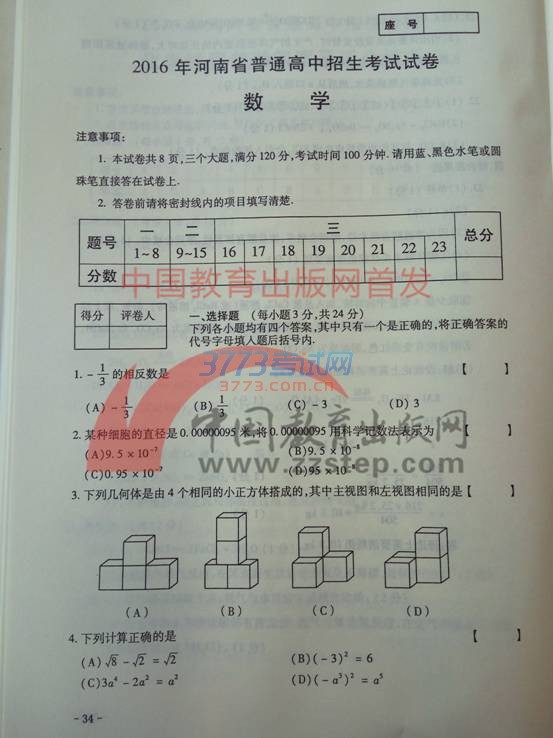 座 号
2016 年河南省普通高中招生考试试卷
数 学
注意事项:
1. 本试卷共 8 页,三个大题,满分 120 分,考试时间 100 分钟. 请用蓝、黑色水笔或圆
珠笔直接答在试卷上.
2. 答卷前请将密封线内的项目填写清楚.
题号 一 二 三 总分
1~8 9~15 16 17 18 19 20 21 22 23
分数
中国教育出版网首发
得分 评卷人
一、选择题 (每小题 3 分,共 24 分)
下列各小题均有四个答案,其中只有一个是正确的,将正确答案的
代号字母填入题后括号内.
3773考试网
3773.com.cn
1. -1/3 的相反数是 【 】
(A) -1/3 (B) 1/3 (C) -3 (D) 3
中国教育出版网
www.zzstep.com
2. 某种细胞的直径是 0.00000095 米,将 0.00000095 用科学记数法表示为 【 】
(A)9.5 × 10⁻⁷ (B)9.5 × 10⁻⁸
(C)0.95 × 10⁻⁷ (D)95 × 10⁻⁸
3. 下列几何体是由 4 个相同的小正方体搭成的,其中主视图和左视图相同的是【 】
(A) (B) (C) (D)
4. 下列计算正确的是 【 】
(A) √8 - √2 = √2 (B)(-3)² = 6
(C)3a⁴ - 2a² = a² (D)(-a³)² = a⁵
- 34 -